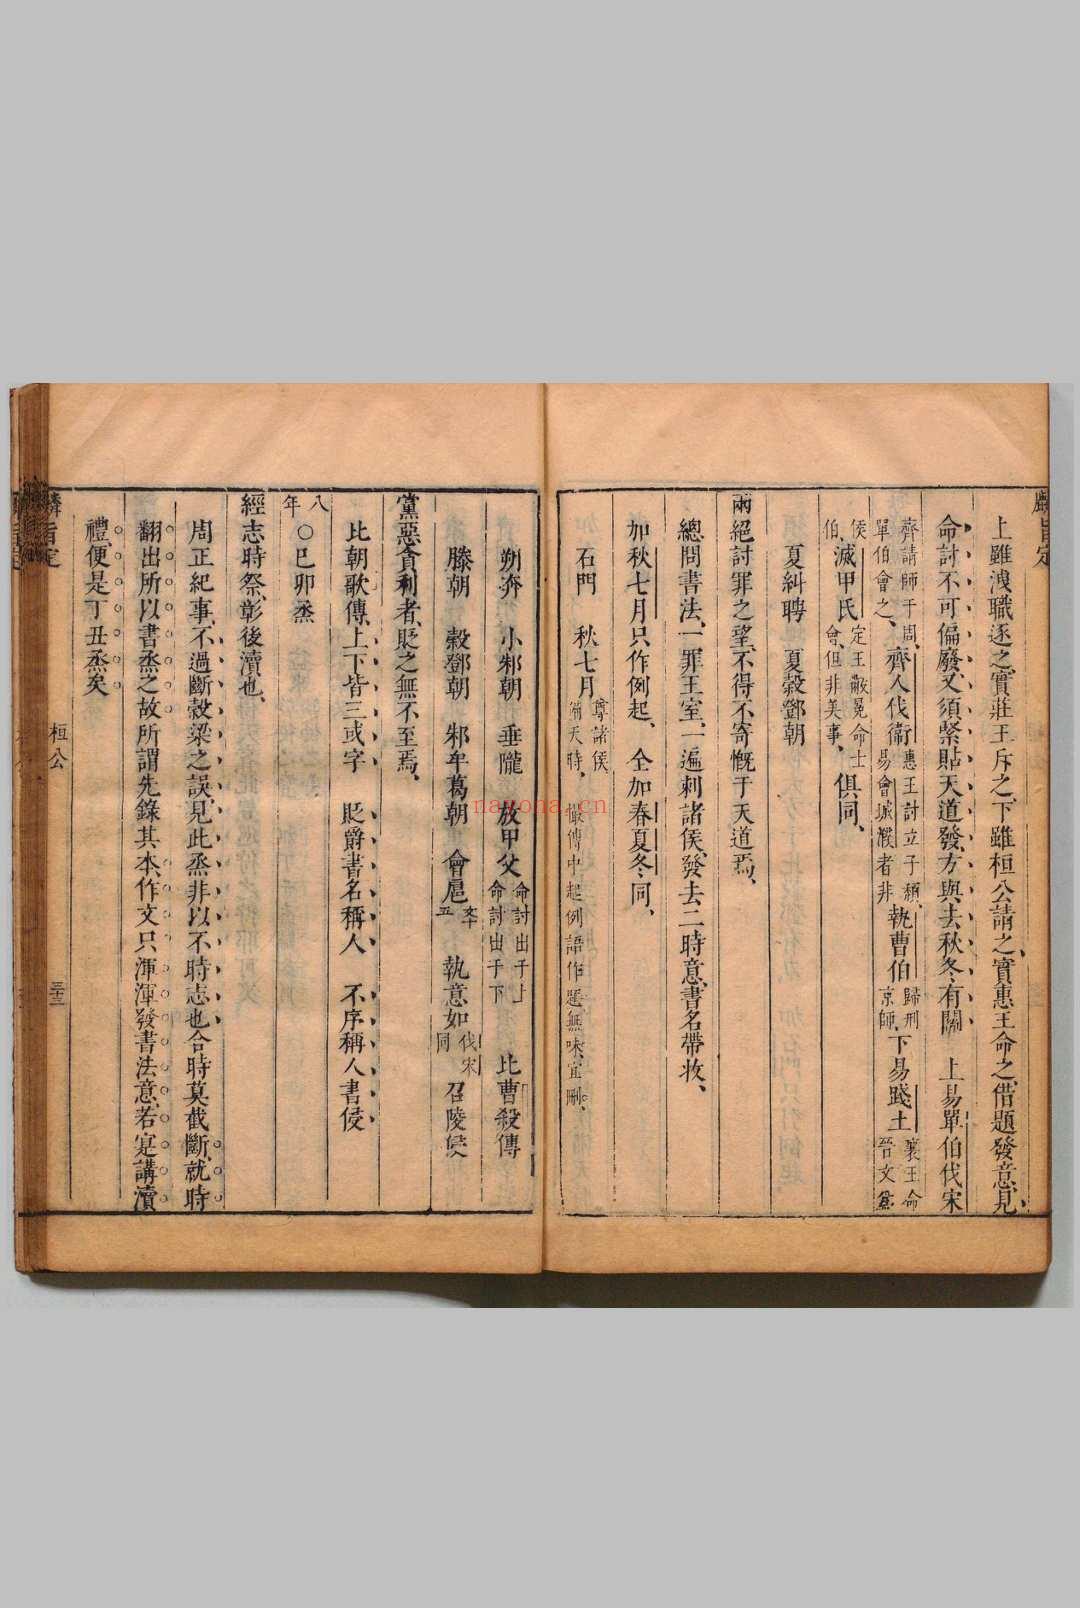 麟旨定
上雖洩職逐之實莊王斥之下雖桓公請之實惠王命之借題發意見
命討不可偏廢又須緊貼天道發方與去秋冬有關　上易單伯伐宋
齊請師于周
單伯會之
齊人伐衛
惠王討立子頽
易會城濮者非
執曹伯
歸刑
京師
下易踐土
襄王命
晉文為
侯
伯
滅甲氏
定王黻冕命士
會但非美事
俱同
夏糾聘　夏穀鄧朝
兩絕討罪之望不得不寄慨于天道焉
總問書法一罪王室一遍刺諸侯發去二時意書名帶妆
加秋七月只作例起　全加春夏冬同
石門　秋七月
尊諸侯
備天時
傳中起例語作題無味宜刪
朔奔　小邾朝　垂隴　放甲父
命討出于上
命討出于下
比曹殺傳
滕朝　穀鄧朝　邾牟葛朝　會扈
文十
五
執意如
伐宋
同
召陵侵
黨惡貪利者貶之無不至焉
比朝歌傳上下皆三或字　貶爵書名稱人　不序稱人書侵
八年
○巳卯烝
經志時祭彰後瀆也
周正紀事不過斷穀梁之誤見此烝非以不時志也合時莫截斷就時
翻出所以書烝之故所謂先錄其本作文只渾渾發書法意若寔講瀆
禮便是丁丑烝矣
麟旨定
桓公
三十三
nayona.cn